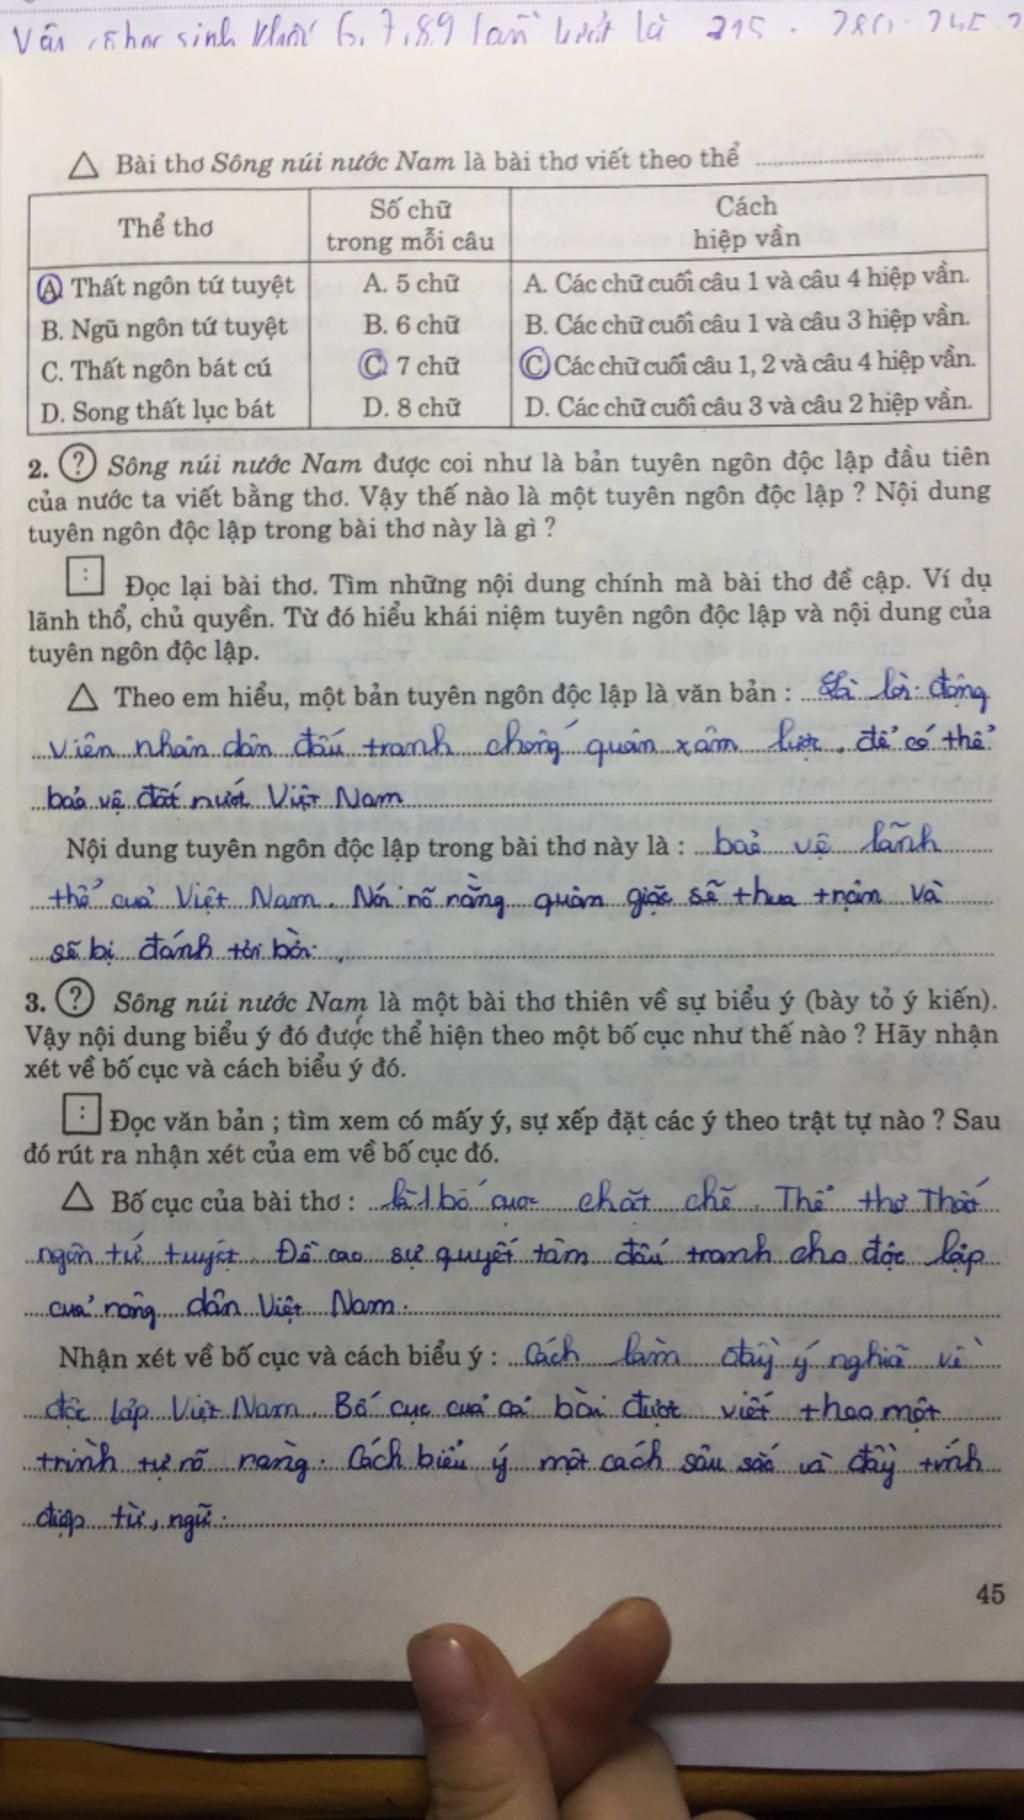 Vậy số học sinh khối 6,7,8,9 lần lượt là 315. 280. 245.
△ Bài thơ Sông núi nước Nam là bài thơ viết theo thể
Thể thơ
Số chữ
trong mỗi câu
Cách
hiệp vần
A. Thất ngôn tứ tuyệt
B. Ngũ ngôn tứ tuyệt
C. Thất ngôn bát cú
D. Song thất lục bát
A. 5 chữ
B. 6 chữ
C. 7 chữ
D. 8 chữ
A. Các chữ cuối câu 1 và câu 4 hiệp vần.
B. Các chữ cuối câu 1 và câu 3 hiệp vần.
C. Các chữ cuối câu 1, 2 và câu 4 hiệp vần.
D. Các chữ cuối câu 3 và câu 2 hiệp vần.
2. ? Sông núi nước Nam được coi như là bản tuyên ngôn độc lập đầu tiên
của nước ta viết bằng thơ. Vậy thế nào là một tuyên ngôn độc lập ? Nội dung
tuyên ngôn độc lập trong bài thơ này là gì ?
: Đọc lại bài thơ. Tìm những nội dung chính mà bài thơ đề cập. Ví dụ
lãnh thổ, chủ quyền. Từ đó hiểu khái niệm tuyên ngôn độc lập và nội dung của
tuyên ngôn độc lập.
△ Theo em hiểu, một bản tuyên ngôn độc lập là văn bản : là lời động
viên nhân dân đấu tranh chống quân xâm lược, để có thể
bảo vệ đất nước Việt Nam
Nội dung tuyên ngôn độc lập trong bài thơ này là : bảo vệ lãnh
thổ của Việt Nam. Nói rõ rằng quân giặc sẽ thua trận và
sẽ bị đánh tơi bời.
3. ? Sông núi nước Nam là một bài thơ thiên về sự biểu ý (bày tỏ ý kiến).
Vậy nội dung biểu ý đó được thể hiện theo một bố cục như thế nào ? Hãy nhận
xét về bố cục và cách biểu ý đó.
: Đọc văn bản ; tìm xem có mấy ý, sự xếp đặt các ý theo trật tự nào ? Sau
đó rút ra nhận xét của em về bố cục đó.
△ Bố cục của bài thơ : là 1 bố cục chặt chẽ. Thể thơ Thất
ngôn tứ tuyệt. Đề cao sự quyết tâm đấu tranh cho độc lập
của nông dân Việt Nam.
Nhận xét về bố cục và cách biểu ý : Cách làm đầy ý nghĩa về
độc lập Việt Nam. Bố cục của cả bài được viết theo một
trình tự rõ ràng. Cách biểu ý một cách sâu sắc và đầy tính
điệp từ, ngữ.
45